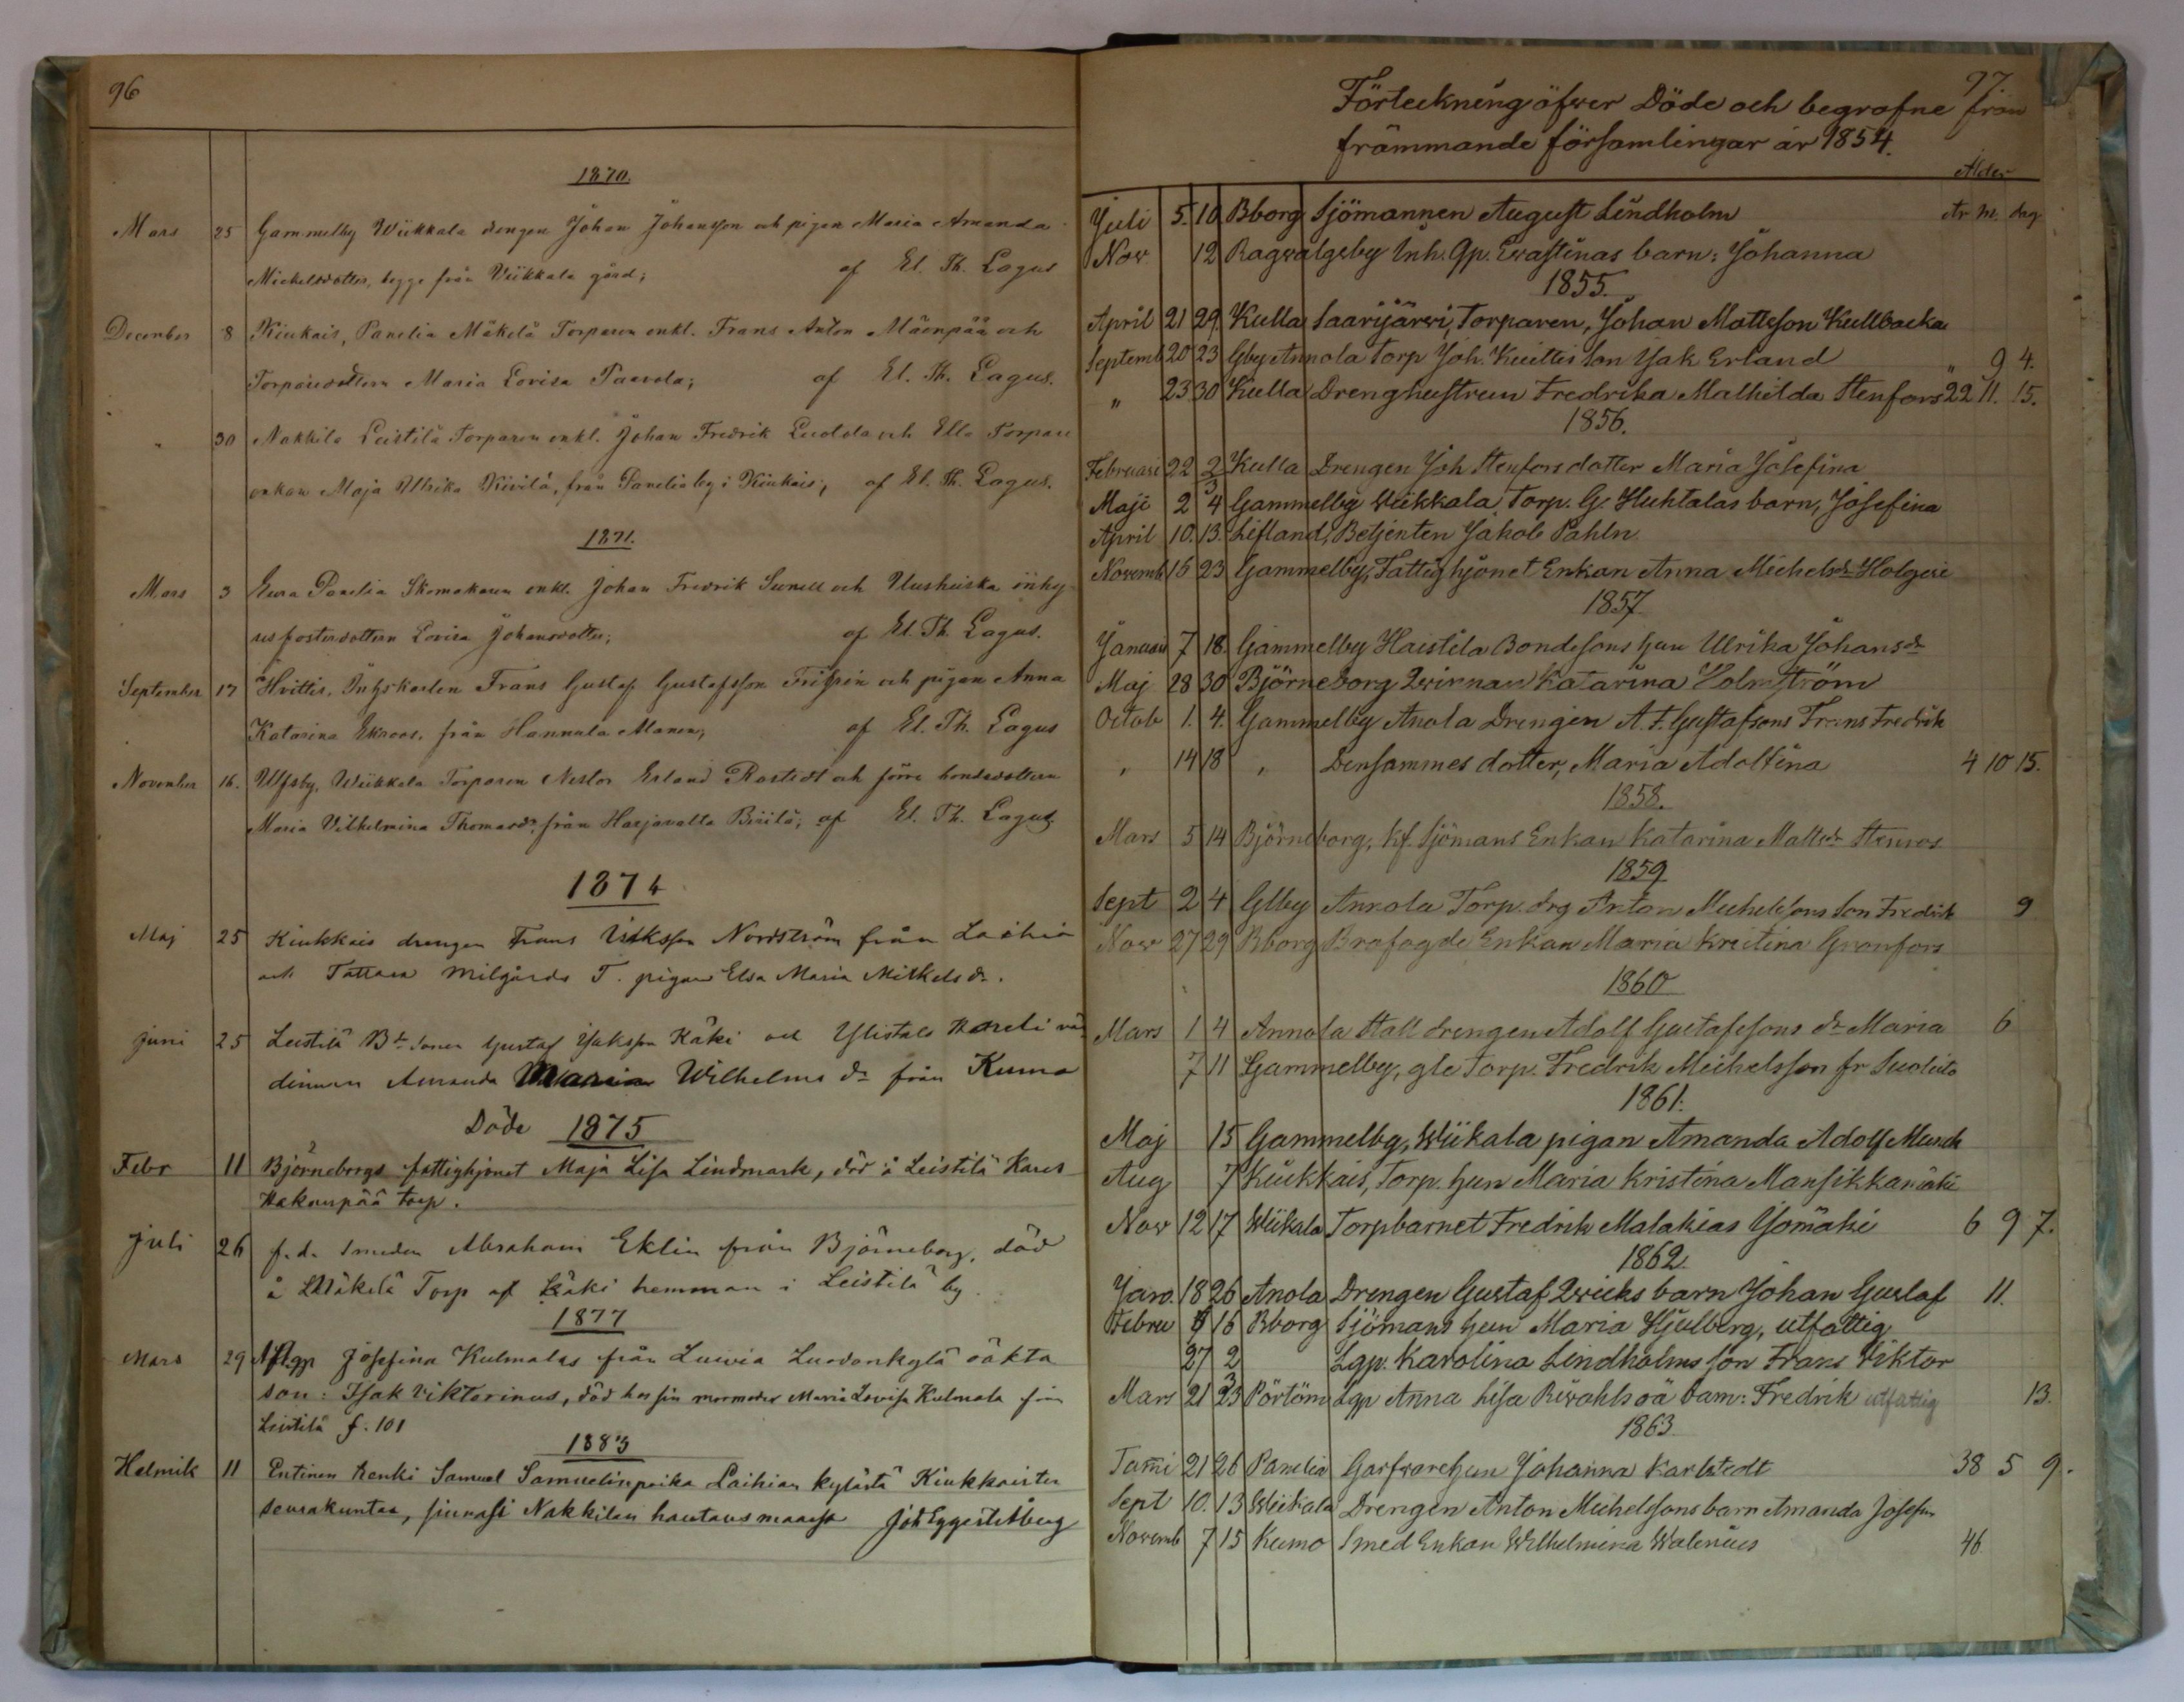 96
1870.
Mars 25 Gammelby Wiikkala drengen Johan Johansson och pigan Maria Amanda
Michelsdotter, begge från Viikkala gård; af El. Th. Lagus
December 8 Kiukais, Panelia Mäkelä Torparen enkl. Frans Anton Mäenpää och
Torparedottern Maria Lovisa Paavola; af El. Th. Lagus.
" 30 Nakkila Leistilä Torparen enkl. Johan Fredrik och Ella Torpare
enkan Maja Ulrika Kivilä, från Panelia by i Kiukais; af El. Th. Lagus.
1871.
Mars 3 Eura Panelia Skomakaren enkl. Johan Fredrik Sunell och inhy
ses fosterdottern Lovisa Johansdotter; af El. Th. Lagus.
September 17 Hvittis, Frans Gustaf Gustafsson och pigan Anna
Katarina från Hannula af El. Th. Lagus
November 16. Ulfsby, Wiikkala Torparen Nestor Erland Rostedt och förre bondedottern
Maria Vilhelmina Thomasdr, från Harjavalta af El. Th. Lagus
1874
Maj 25 Kiukkais drengen Frans Nordström från Laihia
och Tattara Milgårds T. pigan Elsa Maria Mikelsdr.
Juni 25 Leistilä Bde sonen Gustaf Isaksson Käki och Ylistalo Kareli vär
dinnan Amanda Maria Wilhelms dr från Kumo
Döde 1875
Febr 11 Björneborgs fattighjonet Maja Lisa Lindmark, död å Leistilä
torp.
Juli 26 f.d. Smeden Abraham Eklin från Björneborg, död
å Mäkelä Torp af Käki hemman i Leistilä by.
1877
Mars 29 Josefina Kulmalas från Luvia Luodonkylä oäkta
son: Isak Viktorinus, död hos sin mormoder Maria Lovisa Kulmala från
Leistilä f. 101
1883
Helmik 11 Entinen Renki Samuel Samuelinpoika Laihian kylästä Kiukkaisten
seurakuntaa, Nakkilan hautausmaassa
97
Förteckning öfwer Döde och begrafne från
främmande församlingar år 1854.
Ålder
År M. dag
Juli 5. 10 Bborg Sjömannen August Lindholm
Nov 12 Ragwalgsby Inh. Qp. Ewastinas barn: Johanna
1855.
April 21 29. Kulla Saarijärwi, Torparen, Johan Mattsson Kullbacka
Septemb 20 23 Gby Annola Torp Joh. Kuittis son Isak Erland " 9 4.
" 23 30 Kulla Drenghustrun Fredrika Mathilda Stenfors 22 11. 15.
1856.
Februari 22 2/3 Kulla Drengen Joh Stenfors dotter Maria Josefina
Maji 2 4 Gammelby Wiikkala Torp. G. Huhtalas barn, Josefina
April 10. 13. Lifland, Betjenten Jakob Pahln
Novemb 15 23 Gammelby, Fattighjonet Enkan Anna Michelsdr Holgeri
1857
Januari 7 18. Gammelby Haistila Bondesons hun Ulrika Johansdr
Maj 28 30 Björneborg Qwinnan Katarina Holmström
Octob 1. 4. Gammelby Anola Drengen A. F. Gustafsons Frans Fredrik
" 14 18 " Densammes dotter, Maria Adolfina 4 10 15.
1858.
Mars 5 14 Björneborg, kf. Sjömans Enkan Katarina Mattsdr Stenros
1859
Sept 2 4 Glby Annola Torp. drg Anton Michelsons son Fredrik 9
Nov 27 29 Bborg Brofogde Enkan Maria Kristina Granfors
1860
Mars 1 4 Annola Stall drengen Adolf Gustafssons dr Maria 6
7 11 Gammelby, gle Torp. Fredrik Michelsson fr
1861.
Maj 15 Gammelby, Wiikala pigan Amanda Adolf
Aug 7 Kiukkais, Torp. hun Maria Kristina Mansikkamäki
Nov 12 17 Wiikala Torpbarnet Fredrik Malakias Yomäki 6 9 7.
1862.
Janu. 18 26 Anola Drengen Gustaf Qwicks barn Johan Gustaf 11.
Febru 9 16 Bborg Sjömans hun Maria Hjulberg, utfattig
27 2/3 Lgp. Karolina Lindholms son Frans Viktor
Mars 21 23 Pörtöm Lgp Anna Lisa oä barn: Fredrik utfattig 13.
1863
Tam̄i 21 26 Panelia Garfvare hun Johanna Karlstedt 38 5 9.
Sept 10. 13 Wiikala Drengen Anton Michelssons barn Amanda Josefin
Novemb 7 15 Kumo Smed Enkan Wilhelmina Walenius 46